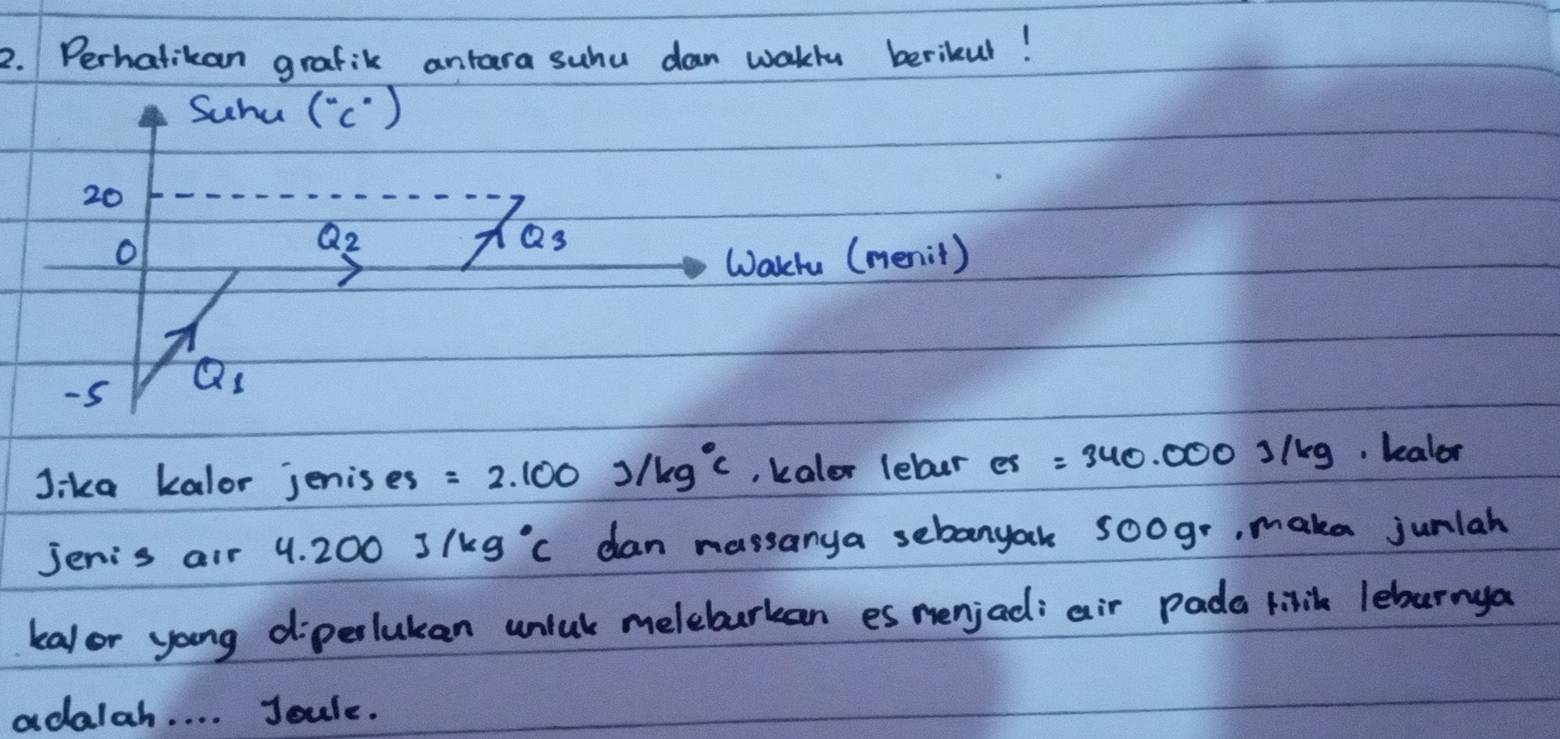 2. Perhatikan grafik antara suhu dan waktu berikut !
Suhu ("c")
20
0
Q2
Q3
Waktu (menit)
-5
Q1
Jika kalor jenis es = 2.100 J/kg°c, kalor lebur es = 340.000 J/kg. kalor
jenis air 4.200 J/kg°c dan massanya sebanyak 500gr, maka jumlah
kalor yang diperlukan untuk meleburkan es menjadi air pada titik leburnya
adalah.... Joule.